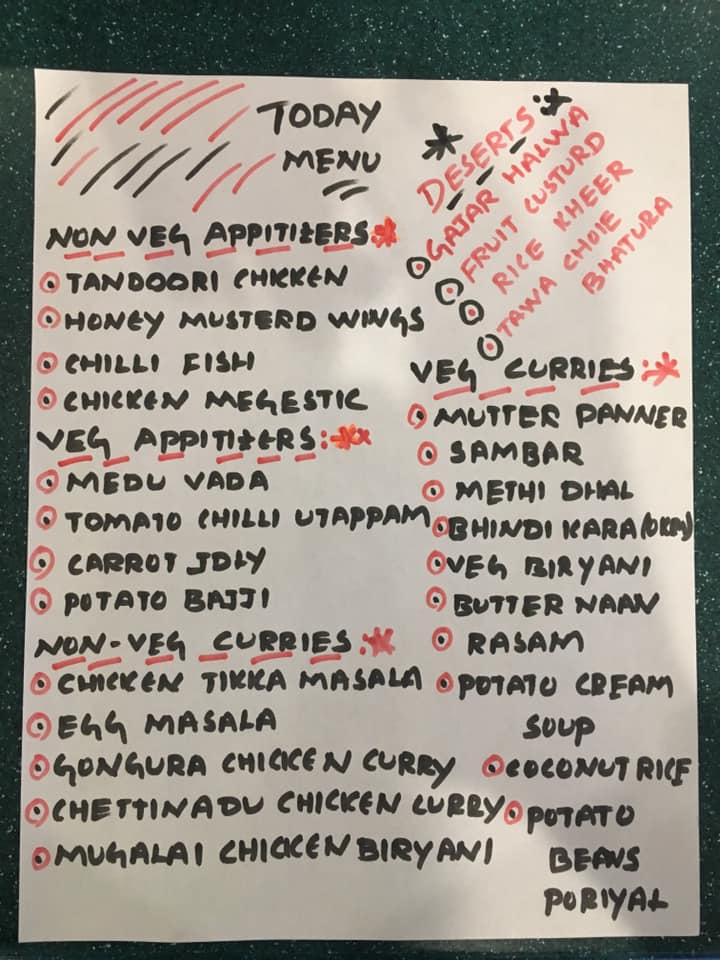 TODAY
MENU
NON VEG APPITIZERS
TANDOORI CHICKEN
HONEY MUSTERD WINGS
CHILLI FISH
CHICKEN MEGESTIC
VEG APPITIZERS:
MEDU VADA
TOMATO CHILLI UTAPPAM
CARROT IDLY
POTATO BAJJI
NON-VEG CURRIES:
CHICKEN TIKKA MASALA
EGG MASALA
GONGURA CHICKEN CURRY
CHETTINADU CHICKEN CURRY
MUGALAI CHICKEN BIRYANI
DESERTS:
GAJAR HALWA
FRUIT CUSTURD
RICE KHEER
TAWA CHOIE
BHATURA
VEG CURRIES:
MUTTER PANNER
SAMBAR
METHI DHAL
BHINDI KARA (OKRA)
VEG BIRYANI
BUTTER NAAN
RASAM
POTATO CREAM
SOUP
COCONUT RICE
POTATO
BEANS
PORIYAL